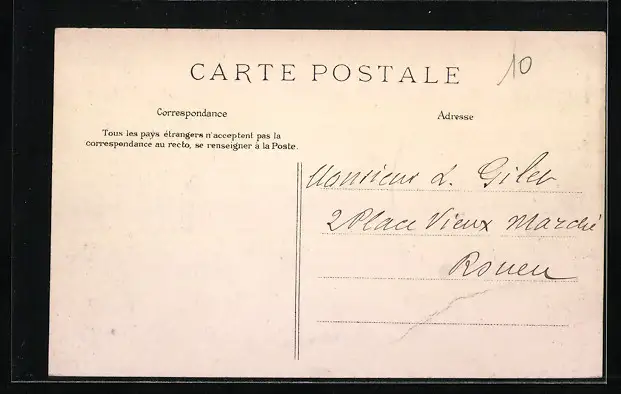 CARTE POSTALE
10
Correspondance
Adresse
Tous les pays étrangers n'acceptent pas la
correspondance au recto, se renseigner à la Poste.
Monsieur L. Gilet
2 Place Vieux Marché
Rouen